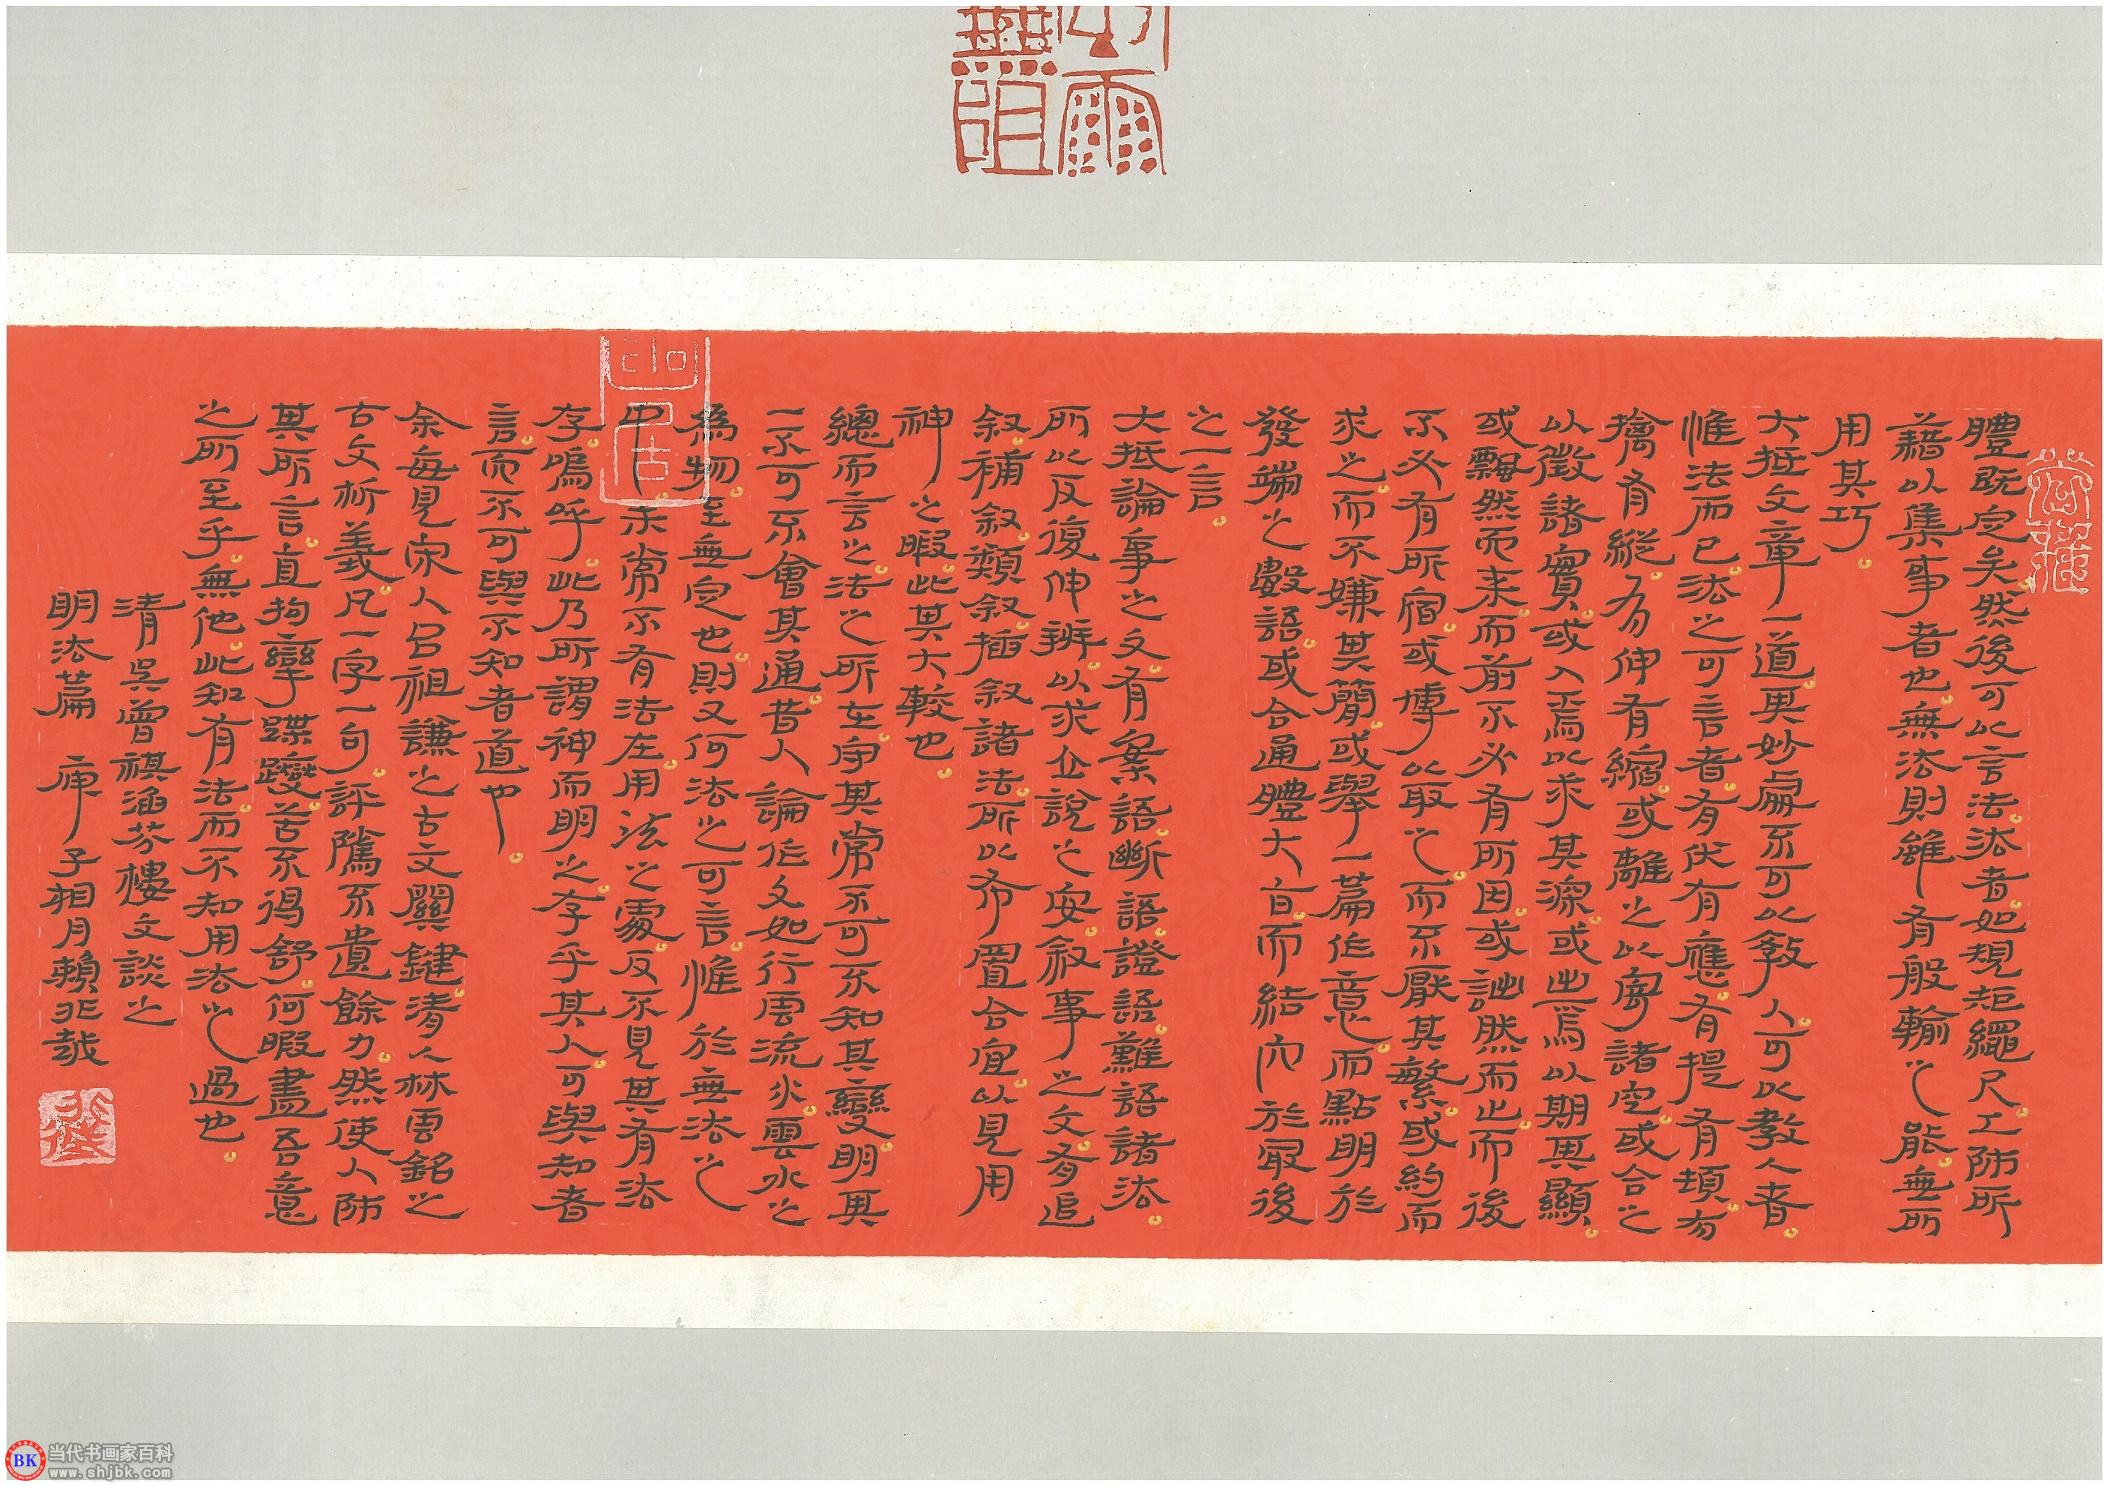 體既定矣然後可以言法法者如規矩繩尺工師所
藉以集事者也無法則雖有般輸之能無所
用其巧
大抵文章一道其妙處不可以教人可以教人者
惟法而已法之可言者有伏有應有提有頓有
擒有縱有伸有縮或離之以寄諸空或合之
以徵諸實或入焉以求其深或出焉以期其顯
或飄然而来而前不必有所因或詘然而止而後
不必有所宿或博以取之而不厭其繁或約而
求之而不嫌其簡或舉一篇作意而點明於
發端之數語或合通體大旨而結穴於最後
之一言
大抵論事之文有案語斷語證語難語諸法
所以反復伸辨以求企說之安叙事之文有追
叙補叙類叙插叙諸法所以布置合宜以見用
神之暇此其大較也
總而言之法之所在守其常不可不知其變明其
一不可不會其通昔人論作文如行雲流水雲水之
為物至無定也則又何法之可言惟於無法之
中未嘗不有法在用法之處反不見其有法
存嗚呼此乃所謂神而明之存乎其人可與知者
言而不可與不知者道也
余每見宋人呂祖謙之古文關鍵清人林雲銘之
古文析義凡一字一句評隲不遺餘力然使人師
其所言直拘攣蹀躞苦不得舒何暇盡吾意
之所至乎無他此知有法而不知用法之過也
清吳曾祺涵芬樓文談之
明法篇 庚子相月賴非哉
BK 当代书画家百科
www.shjbk.com